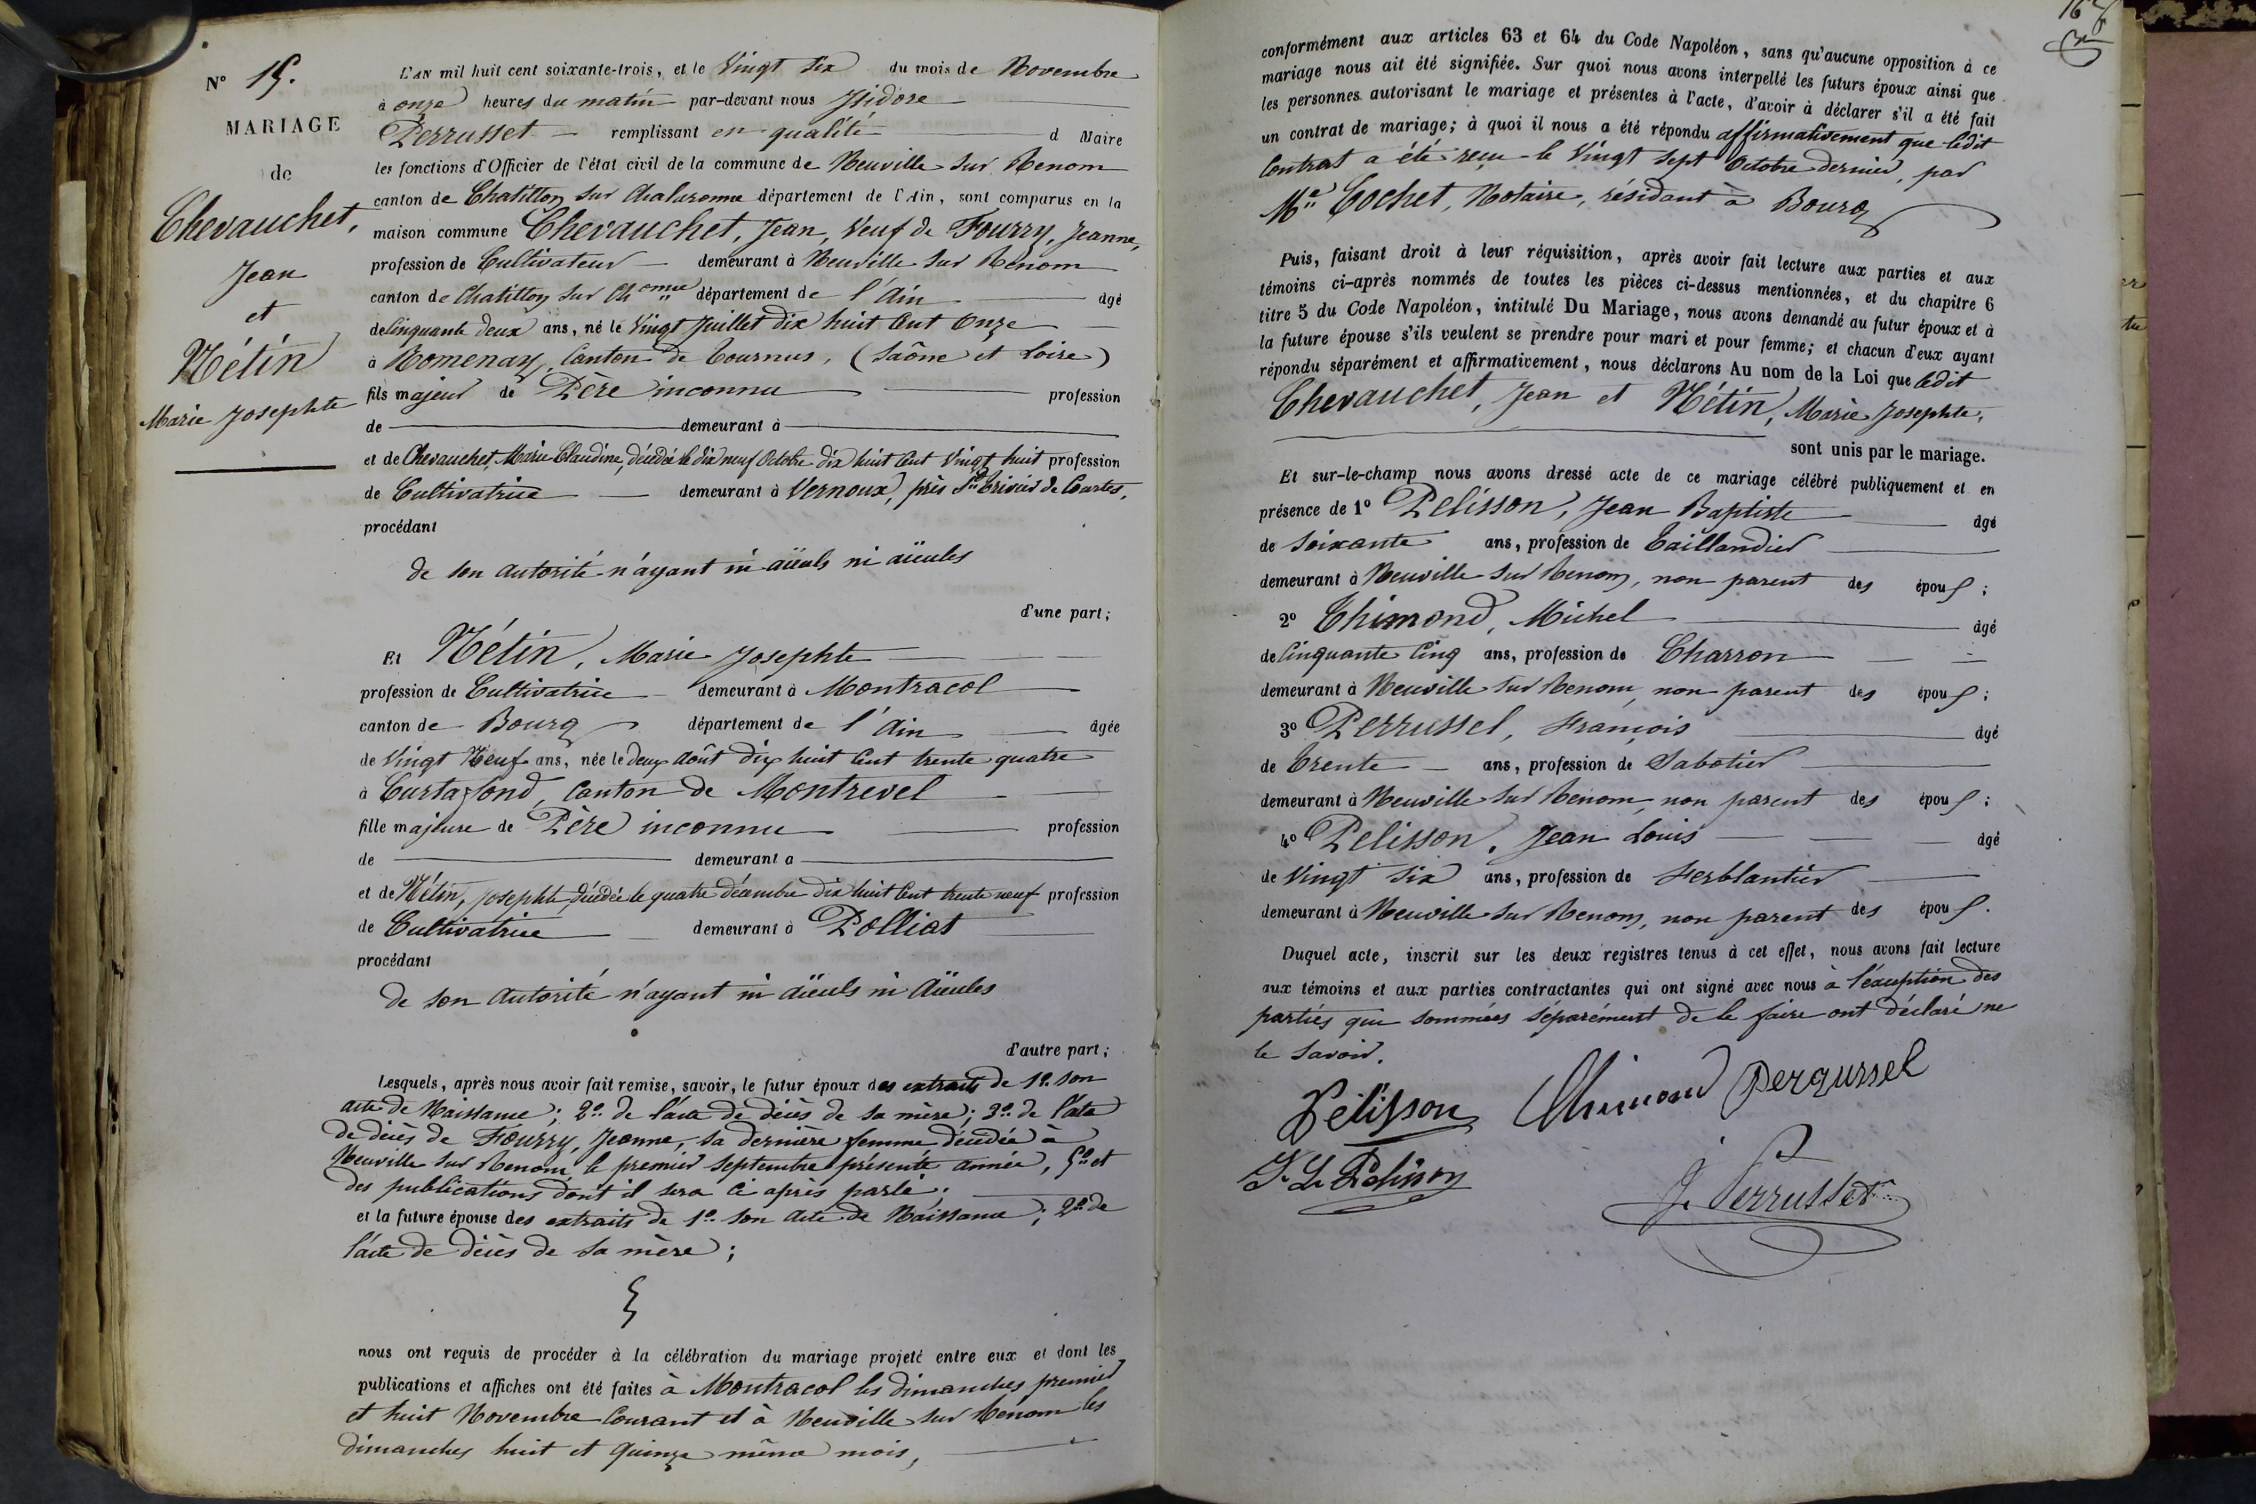 N° 15.
MARIAGE
de
Chevauchet,
Jean
et
Nétin
Marie Josephte
L'AN mil huit cent soixante-trois, et le Vingt Six du mois de Novembre
à onze heures du matin par-devant nous Isidore
Perrusset remplissant en qualité d Maire
les fonctions d'Officier de l'état civil de la commune de Neuville sur Renom
canton de Chatillon sur Chalaronne département de l'Ain, sont comparus en la
maison commune Chevauchet, Jean, Veuf de Fourry, Jeanne,
profession de Cultivateur demeurant à Neuville sur Renom
canton de Chatillon sur Chonne département de l'Ain âgé
de Cinquante deux ans, né le Vingt Juillet dix huit Cent Onze
à Romenay, Canton de Tournus, (Saône et Loire)
fils majeur de Père inconnu profession
de demeurant à
et de Chevauchet, Marie Claudine, décédée le dix neuf Octobre dix huit Cent Vingt huit profession
de Cultivatrice demeurant à Vernoux, près St Trivier de Courtes,
procédant
de son autorité n'ayant ni aïeuls ni aïeules
d'une part;
Et Nétin, Marie Josephte
profession de Cultivatrice demeurant à Montracol
canton de Bourg département de l'Ain âgée
de Vingt Neuf ans, née le deux Août dix huit Cent trente quatre
à Curtafond, Canton de Montrevel
fille majeure de Père inconnu profession
de demeurant à
et de Nétin, Josephte, décédée le quatre décembre dix huit Cent trente neuf profession
de Cultivatrice demeurant à Polliat
procédant
de son autorité n'ayant ni aïeuls ni aïeules
d'autre part;
Lesquels, après nous avoir fait remise, savoir, le futur époux des extraits de 1° son
acte de Naissance; 2° de l'acte de décès de sa mère; 3° de l'acte
de décès de Fourry, Jeanne, sa dernière femme décédée à
Neuville sur Renom le premier septembre présente année, 5° et
des publications dont il sera ci après parlé;
et la future épouse des extraits de 1° son acte de Naissance; 2° de
l'acte de décès de sa mère;
nous ont requis de procéder à la célébration du mariage projeté entre eux et dont les
publications et affiches ont été faites à Montracol les dimanches premier
et huit Novembre Courant et à Neuville sur Renom les
dimanches huit et Quinze même mois,
16
conformément aux articles 63 et 64 du Code Napoléon, sans qu'aucune opposition à ce
mariage nous ait été signifiée. Sur quoi nous avons interpellé les futurs époux ainsi que
les personnes autorisant le mariage et présentes à l'acte, d'avoir à déclarer s'il a été fait
un contrat de mariage; à quoi il nous a été répondu affirmativement que ledit
Contrat a été reçu le Vingt Sept Octobre dernier, par
Me Cochet, Notaire, résidant à Bourg
Puis, faisant droit à leur réquisition, après avoir fait lecture aux parties et aux
témoins ci-après nommés de toutes les pièces ci-dessus mentionnées, et du chapitre 6
titre 5 du Code Napoléon, intitulé Du Mariage, nous avons demandé au futur époux et à
la future épouse s'ils veulent se prendre pour mari et pour femme; et chacun d'eux ayant
répondu séparément et affirmativement, nous déclarons Au nom de la Loi que ledit
Chevauchet, Jean et Nétin, Marie Josephte,
sont unis par le mariage.
Et sur-le-champ nous avons dressé acte de ce mariage célébré publiquement et en
présence de 1° Pelisson, Jean Baptiste âgé
de Soixante ans, profession de Taillandier
demeurant à Neuville sur Renom, non parent des époux;
2° Thimond, Michel âgé
de Cinquante Cinq ans, profession de Charron
demeurant à Neuville sur Renom, non parent des époux;
3° Perrussel, François âgé
de Trente ans, profession de Sabotier
demeurant à Neuville sur Renom, non parent des époux;
4° Pelisson, Jean Louis âgé
de Vingt Six ans, profession de Ferblantier
demeurant à Neuville sur Renom, non parent des époux.
Duquel acte, inscrit sur les deux registres tenus à cet effet, nous avons fait lecture
aux témoins et aux parties contractantes qui ont signé avec nous à l'éxception des
parties qui sommées séparément de le faire ont déclaré ne
le savoir.
Pélisson Thimond Perqussel
J. L. Pelisson
J. Perrusset